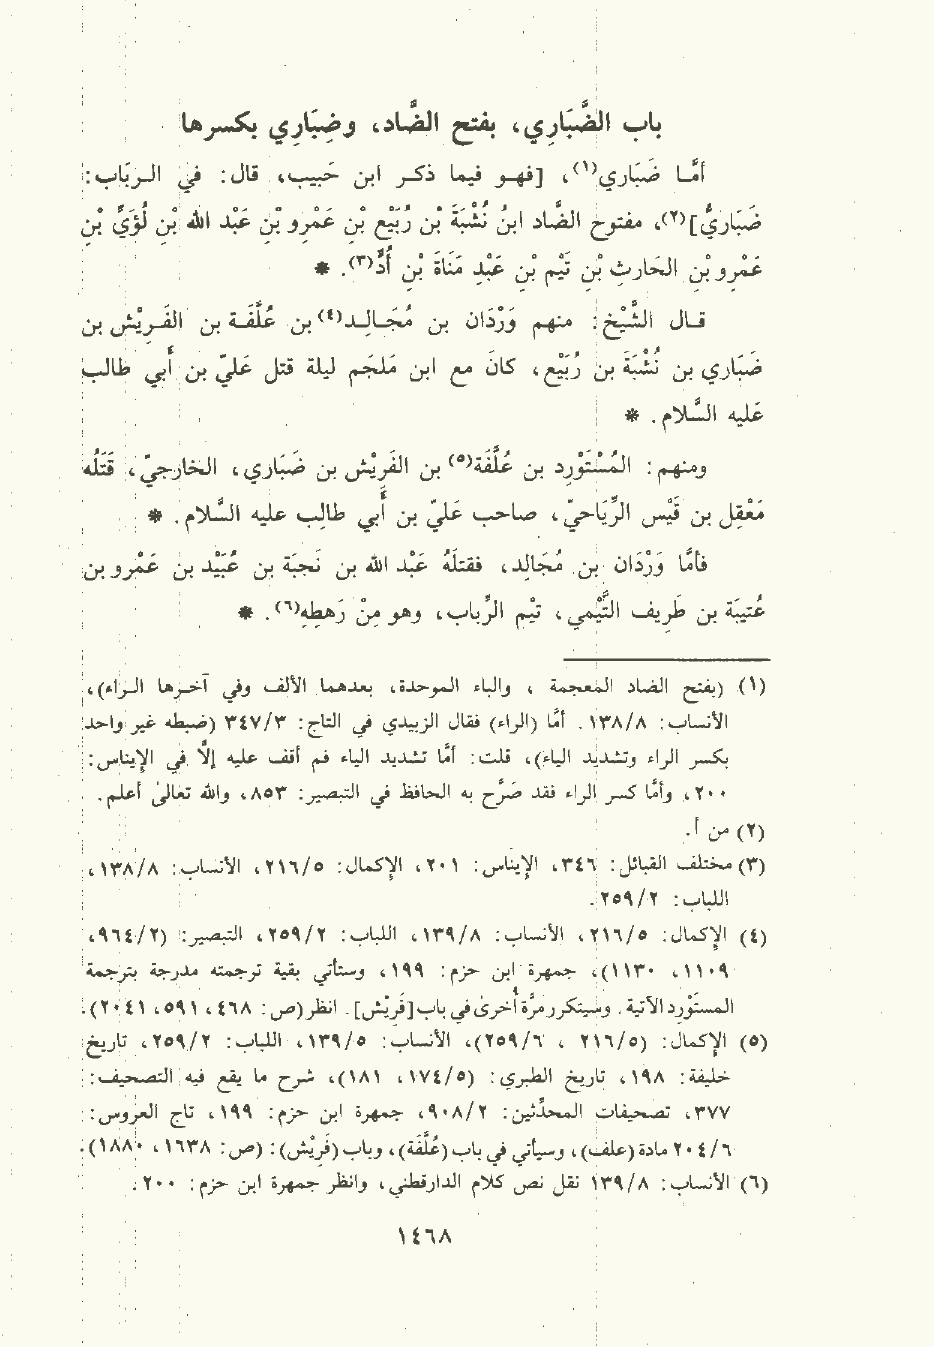 باب الضَّبَارِي، بفتح الضَّاد، وضِبَارِي بكسرها
أمَّا ضَبَاري(١)، [فهو فيما ذكر ابن حَبيب، قال: في الرِبَاب:
ضَبَاريُّ](٢)، مفتوح الضَّاد ابنُ نُشْبَةَ بْن رُبَيْع بْنِ عَمْرو بْنِ عَبْد الله بْنِ لُؤَيِّ بْنِ
عَمْرِو بْنِ الحَارِثِ بْنِ تَيْم بْنِ عَبْدِ مَنَاةَ بْنِ أُدٍّ(٣). *
قال الشَّيْخ: منهم وَرْدَان بن مُجَالِد(٤) بن عُلَّفَة بن الفَرِيْش بن
ضَبَاري بن نُشْبَةَ بن رُبَيْع، كانَ مع ابن مَلجَم ليلة قتل عَليّ بن أَبي طالب
عَليه السَّلام. *
ومنهم: المُسْتَوْرِد بن عُلَّفَة(٥) بن الفَرِيْش بن ضَبَاري، الخارجيّ، قَتَلُه
مَعْقِل بن قَيْس الرِّيَاحيّ، صاحب عَليّ بن أَبي طالِب عليه السَّلام. *
فأمَّا وَرْدَان بن مُجَالِد، فقتلَهُ عَبْد الله بن نَجبَة بن عُبَيْد بن عَمْرو بن
عُتيبَة بن طَرِيف التَّيْمي، تيْم الرِّباب، وهو مِنْ رَهطِه(٦). *
(١) (بفتح الضاد المعجمة، والباء الموحدة، بعدهما الألف وفي آخرها الراء)،
الأنساب: ١٣٨/٨. أمَّا (الراء) فقال الزبيدي في التاج: ٣٤٧/٣ (ضبطه غير واحد
بكسر الراء وتشديد الياء)، قلت: أمَّا تشديد الياء فم أقف عليه إلَّا في الإيناس:
٢٠٠، وأمَّا كسر الراء فقد صَرَّح به الحافظ في التبصير: ٨٥٣، والله تعالىٰ أعلم.
(٢) من أ.
(٣) مختلف القبائل: ٣٤٦، الإيناس: ٢٠١، الإكمال: ٢١٦/٥، الأنساب: ١٣٨/٨،
اللباب: ٢٥٩/٢.
(٤) الإكمال: ٢١٦/٥، الأنساب: ١٣٩/٨، اللباب: ٢٥٩/٢، التبصير: (٩٦٤/٢،
١١٠٩، ١١٣٠)، جمهرة ابن حزم: ١٩٩، وستأتي بقية ترجمته مدرجة بترجمة
المستَوْرِد الآتية. وسيتكرر مرَّة أُخرىٰ في باب [فَرِيْش]. انظر (ص: ٤٦٨، ٥٩١، ٢٠٤١).
(٥) الإكمال: (٢١٦/٥، ٢٥٩/٦)، الأنساب: ١٣٩/٥، اللباب: ٢٥٩/٢، تاريخ
خليفة: ١٩٨، تاريخ الطبري: (١٧٤/٥، ١٨١)، شرح ما يقع فيه التصحيف:
٣٧٧، تصحيفات المحدِّثين: ٩٠٨/٢، جمهرة ابن حزم: ١٩٩، تاج العروس:
٢٠٤/٦ مادة (علف)، وسيأتي في باب (عُلَّفَة)، وباب (فَرِيْش): (ص: ١٦٣٨، ١٨٨٠).
(٦) الأنساب: ١٣٩/٨ نقل نص كلام الدارقطني، وانظر جمهرة ابن حزم: ٢٠٠.
١٤٦٨